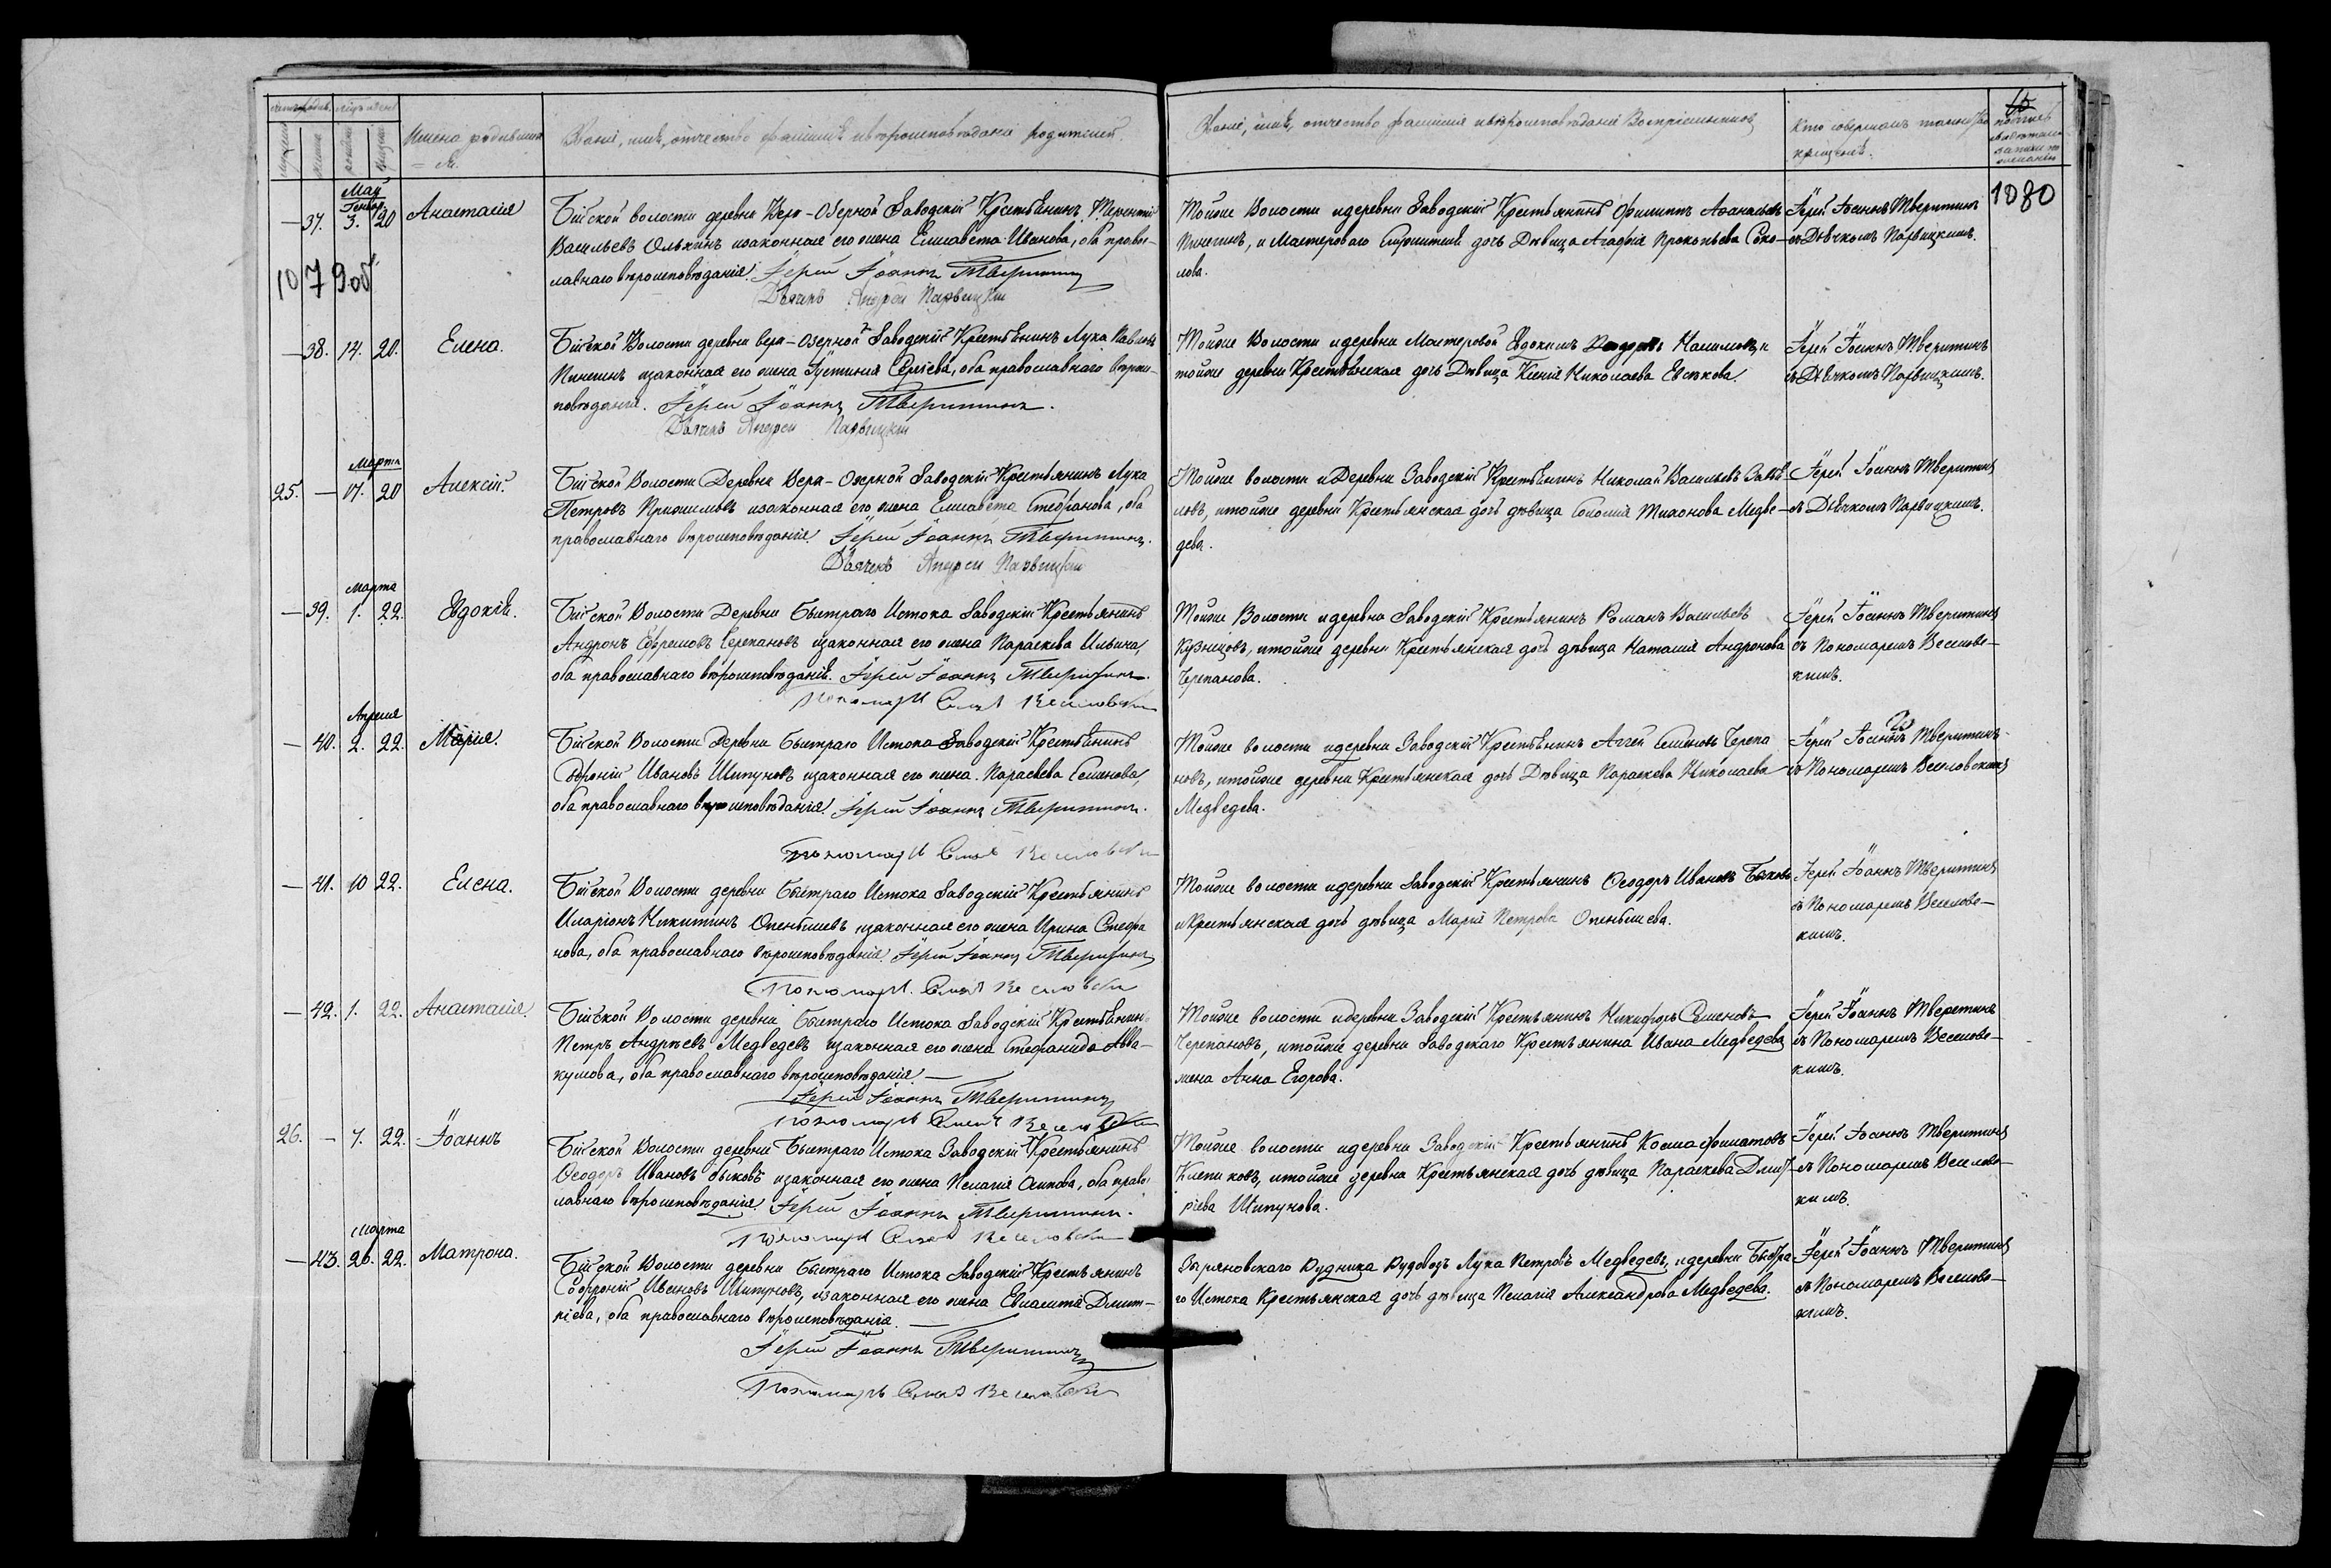 Имена родившихся.
Званiе, имя, отчество, фамилiя и вѣроисповѣданiе родителей.
Званiе, имя, отчество фамилiя и вѣроисповѣданiе Воспрiемниковъ
Кто совершалъ таинство
крещенiя.
Май
Генвар.
— 37. 3. 20 Анастасiя
Бiйской волости деревни Верх-Озерной Заводскiй Крестьянинъ Терентiй
Васильевъ Олькинъ и законная его жена Елисавета Иванова, оба правос-
лавнаго вѣроисповѣданiя. Iерей Iоаннъ Тверитинъ
Дьячекъ Андрей Парвицкiй
Тойже Волости и деревни Заводскiй Крестьянинъ Филиппъ Афанасьевъ
Пинегинъ, и Мастероваго дочь Дѣвица Агафiя Прокопьева Соко-
лова.
Iерей Iоаннъ Тверитинъ
съ Дьячкомъ Парвицкимъ.
1080
1079 об
— 38. 14. 20. Елена.
Бiйской Волости деревни Верх-Озерной Заводскiй Крестьянинъ Лука Павловъ
Пинегинъ и законная его жена Iустинiя Сергiева, оба православнаго вѣроис-
повѣданiя. Iерей Iоаннъ Тверитинъ.
Дьячекъ Андрей Парвицкiй
Тойже Волости и деревни Мастеровой Евдокимъ и
тойже деревни Крестьянская дочь Дѣвица Ксенiя Николаева Евсѣкова.
Iерей Iоаннъ Тверитинъ
съ Дьячкомъ Парвицкимъ.
Марта
25. — 17. 20 Алексiй.
Бiйской Волости Деревни Верх-Озерной Заводскiй Крестьянинъ Лука
Петровъ и законная его жена Елисавета Стефанова, оба
православнаго вѣроисповѣданiя. Iерей Iоаннъ Тверитинъ.
Дьячекъ Андрей Парвицкiй
Тойже волости и Деревни Заводскiй Крестьянинъ Николай Васильевъ Завья-
ловъ, и тойже деревни Крестьянская дочь дѣвица Соломiя Тихонова Медве-
дева.
Iерей Iоаннъ Тверитинъ
съ Дьячкомъ Парвицкимъ.
Марта
— 39. 1. 22. Евдокiя.
Бiйской Волости Деревни Быстраго Истока Заводскiй Крестьянинъ
Андронъ Ефремовъ Черепановъ и законная его жена Параскева Ильина,
оба православнаго вѣроисповѣданiя. Iерей Iоаннъ Тверитинъ.
Пономарь Веселовскiй
Тойже Волости и деревни Заводскiй Крестьянинъ Романъ Васильевъ
Кузнецовъ, и тойже деревни Крестьянская дочь дѣвица Наталiя Андронова
Черепанова.
Iерей Iоаннъ Тверитинъ
съ Пономаремъ Веселовс-
кимъ.
Апреля
— 40. 2. 22. Марiя.
Бiйской Волости Деревни Быстраго Истока Заводскiй Крестьянинъ
Софронiй Ивановъ Шипуновъ и законная его жена Параскева Семенова,
оба православнаго вѣроисповѣданiя. Iерей Iоаннъ Тверитинъ.
Пономарь Веселовскiй
Тойже волости и деревни Заводскiй Крестьянинъ Аггей Семеновъ Черепа
новъ, и тойже деревни Крестьянская дочь Дѣвица Параскева Николаева
Медведева.
Iерей Iоаннъ Тверитинъ
съ Пономаремъ Веселовскимъ
— 41. 10 22. Елена.
Бiйской Волости деревни Быстраго Истока Заводскiй Крестьянинъ
Иларiонъ Никитинъ Опенышевъ и законная его жена Ирина Стефа
нова, оба православнаго вѣроисповѣданiя. Iерей Iоаннъ Тверитинъ
Пономарь Веселовскiй
Тойже волости и деревни Заводскiй Крестьянинъ Ѳеодоръ Ивановъ Быковъ
и Крестьянская дочь дѣвица Марiя Петрова Опенышева.
Iерей Iоаннъ Тверитинъ
съ Пономаремъ Веселовс-
кимъ.
— 42. 1. 22. Анастасiя.
Бiйской Волости деревни Быстраго Истока Заводскiй Крестьянинъ
Петръ Андрѣевъ Медведевъ и законная его жена Стефанида Авва-
кумова, оба православнаго вѣроисповѣданiя. —
Iерей Iоаннъ Тверитинъ
Пономарь Веселовскiй
Тойже волости и деревни Заводскiй Крестьянинъ Никифоръ Семеновъ
Черепановъ, и тойже деревни Заводскаго Крестьянина Ивана Медведева
жена Анна Егорова.
Iерей Iоаннъ Тверетинъ
съ Пономаремъ Веселовс-
кимъ.
26. — 7. 22. Iоаннъ
Бiйской Волости деревни Быстраго Истока Заводскiй Крестьянинъ
Ѳеодоръ Ивановъ Быковъ и законная его жена Пелагiя Осипова, оба правос
лавнаго вѣроисповѣданiя. Iерей Iоаннъ Тверитинъ.
Пономарь Веселовскiй
Тойже волости и деревни Заводскiй Крестьянинъ Косма Филатовъ
Клепиковъ, и тойже деревни Крестьянская дочь дѣвица Параскева Димит-
рiева Шипунова.
Iерей Iоаннъ Тверитинъ
съ Пономаремъ Веселовс-
кимъ.
Марта
— 43. 26. 22. Матрона.
Бiйской Волости деревни Быстраго Истока Заводскiй Крестьянинъ
Софронiй Ивановъ Шипуновъ, и законная его жена Дмит-
рiева, оба православнаго вѣроисповѣданiя. —
Iерей Iоаннъ Тверитинъ
Пономарь Веселовскiй
Зыряновскаго Рудника Рудовозъ Лука Петровъ Медведевъ, и деревни Быстра
го Истока Крестьянская дочь дѣвица Пелагiя Александрова Медведева.
Iерей Iоаннъ Тверитинъ
съ Пономаремъ Веселовс-
кимъ.